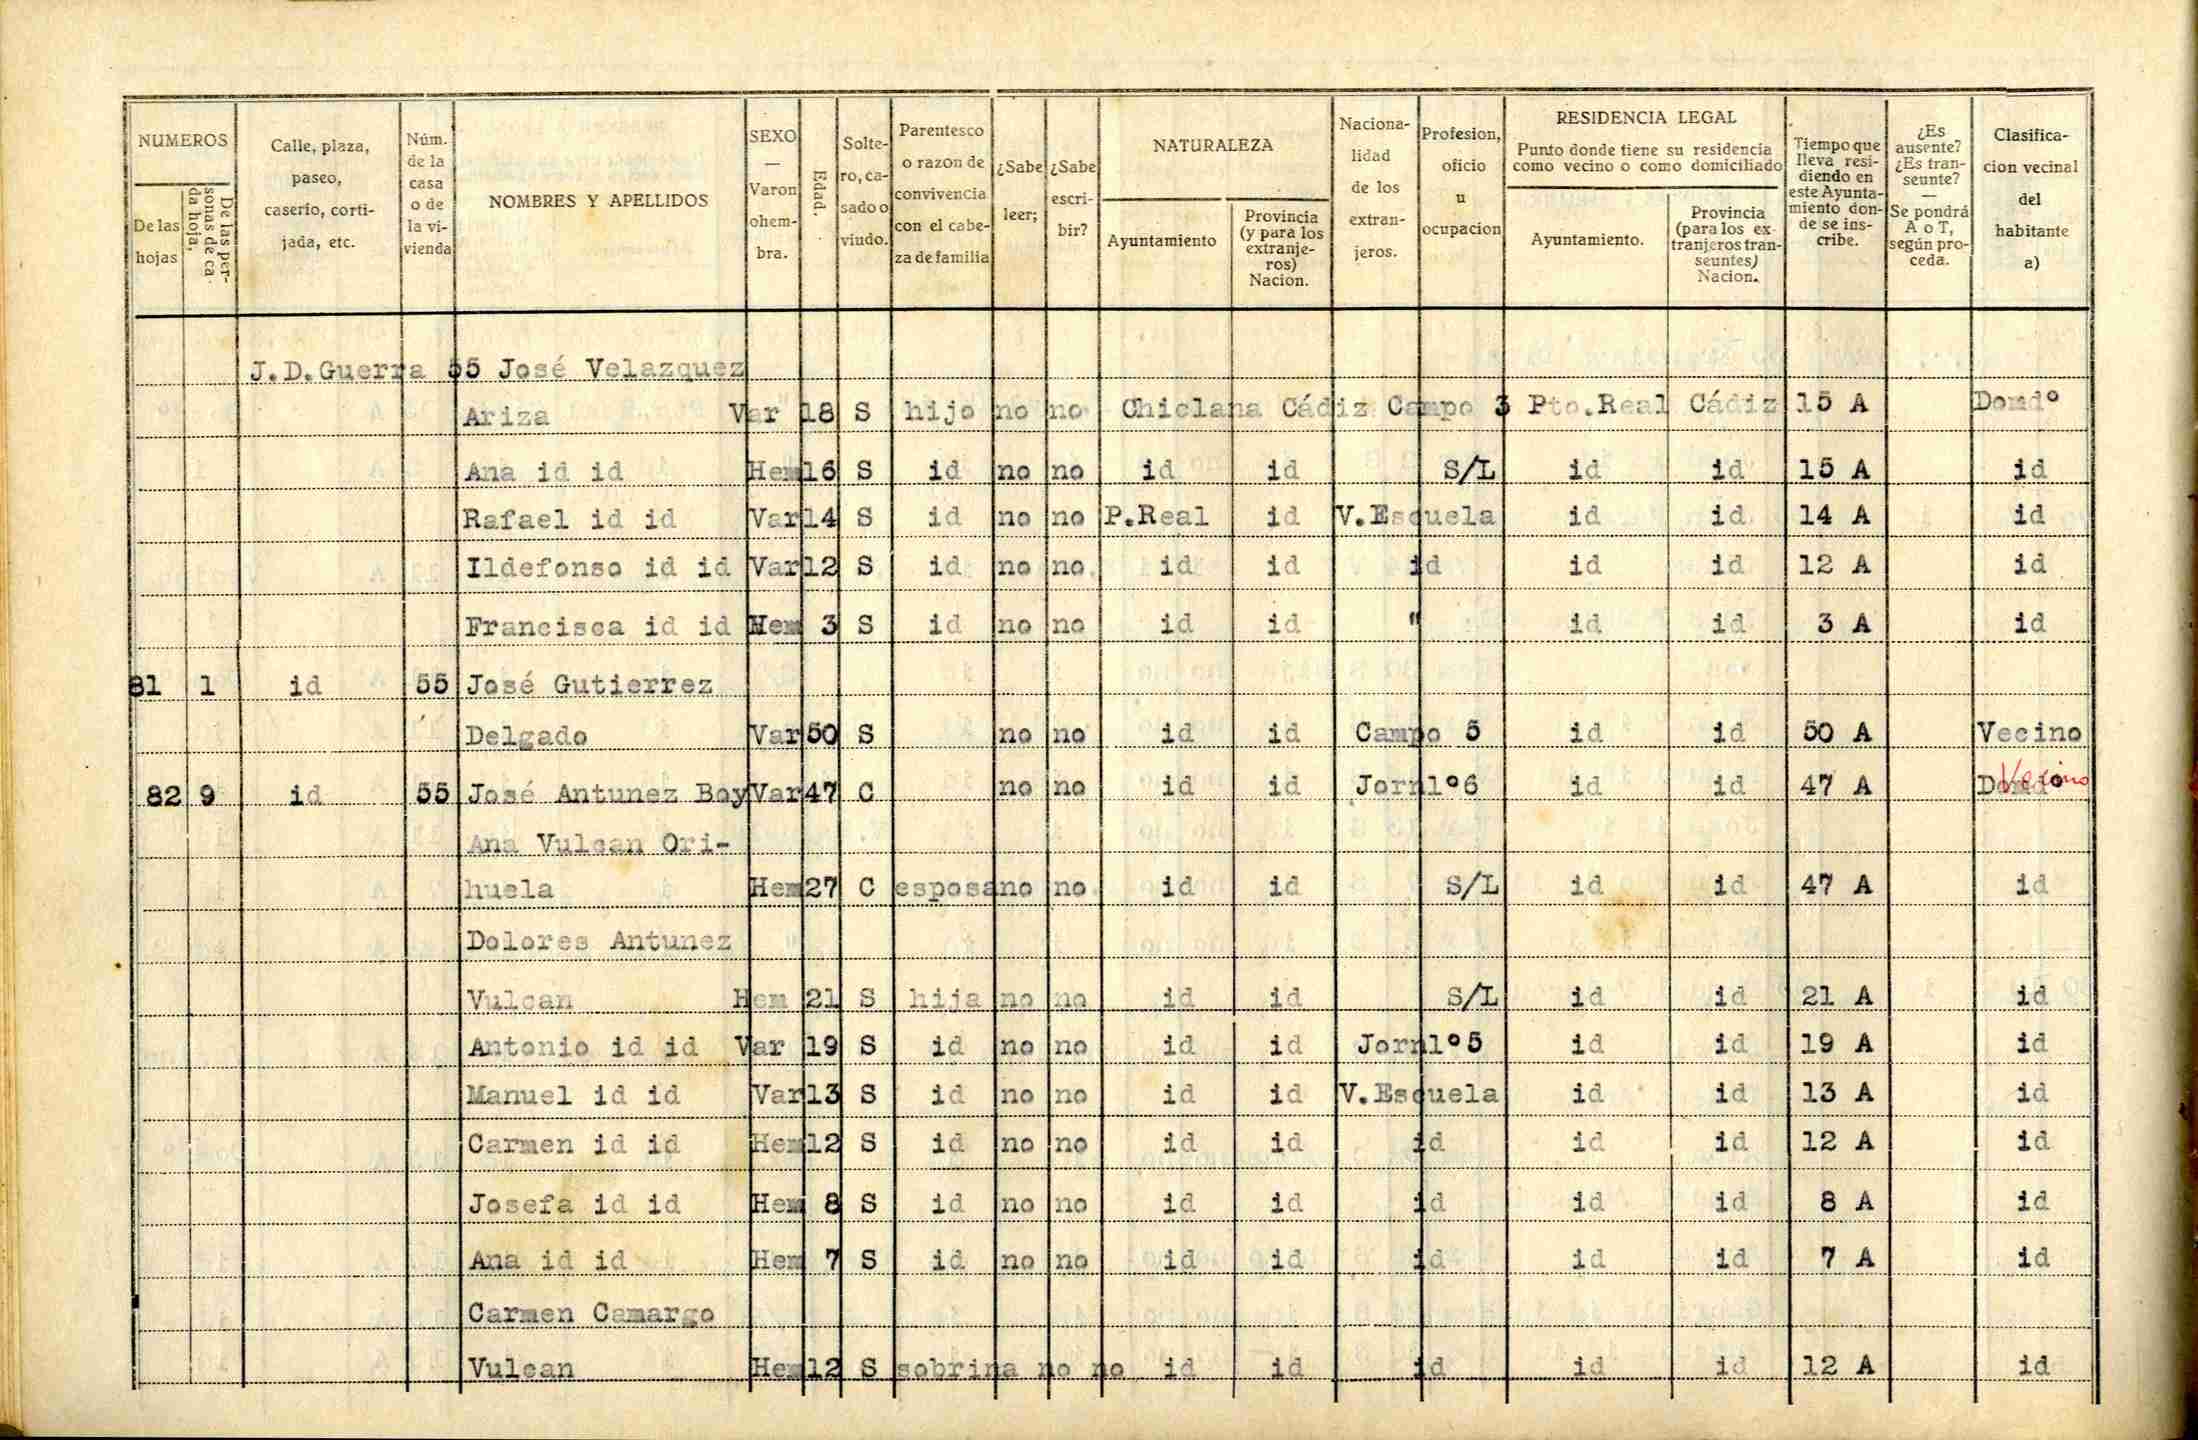 NUMEROS
De las hojas
De las personas de cada hoja,
Calle, plaza, paseo, caserio, cortijada, etc.
Núm. de la casa o de la vivienda
NOMBRES Y APELLIDOS
SEXO — Varon ohembra.
Edad.
Soltero, casado o viudo.
Parentesco o razon de convivencia con el cabeza de familia
¿Sabe leer;
¿Sabe escribir?
NATURALEZA
Ayuntamiento
Provincia (y para los extranjeros) Nacion.
Nacionalidad de los extranjeros.
Profesion, oficio u ocupacion
RESIDENCIA LEGAL
Punto donde tiene su residencia como vecino o como domiciliado
Ayuntamiento.
Provincia (para los extranjeros transeuntes) Nacion.
Tiempo que lleva residiendo en este Ayuntamiento donde se inscribe.
¿Es ausente? ¿Es transeunte? — Se pondrá A o T, según proceda.
Clasificacion vecinal del habitante a)
J.D.Guerra 55 José Velazquez
Ariza Var 18 S hijo no no Chiclana Cádiz Campo 3 Pto.Real Cádiz 15 A Domdº
Ana id id Hem 16 S id no no id id S/L id id 15 A id
Rafael id id Var 14 S id no no P.Real id V.Escuela id id 14 A id
Ildefonso id id Var 12 S id no no id id id id id 12 A id
Francisca id id Hem 3 S id no no id id " id id 3 A id
81 1 id 55 José Gutierrez
Delgado Var 50 S no no id id Campo 5 id id 50 A Vecino
82 9 id 55 José Antunez Boy Var 47 C no no id id Jornlº6 id id 47 A Domdº Vecino
Ana Vulcan Ori-
huela Hem 27 C esposa no no id id S/L id id 47 A id
Dolores Antunez
Vulcan Hem 21 S hija no no id id S/L id id 21 A id
Antonio id id Var 19 S id no no id id Jornlº5 id id 19 A id
Manuel id id Var 13 S id no no id id V.Escuela id id 13 A id
Carmen id id Hem 12 S id no no id id id id id 12 A id
Josefa id id Hem 8 S id no no id id id id id 8 A id
Ana id id Hem 7 S id no no id id id id id 7 A id
Carmen Camargo
Vulcan Hem 12 S sobrina no no id id id id id 12 A id